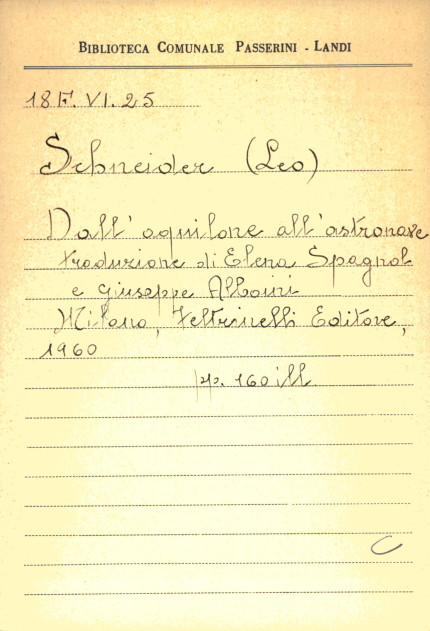 BIBLIOTECA COMUNALE PASSERINI - LANDI
18 F. VI. 25
Schneider (Leo)
Dall'aquilone all'astronave
traduzione di Elena Spagnol
e Giuseppe Albouri
Milano, Feltrinelli Editore,
1960
pp. 160 ill
C